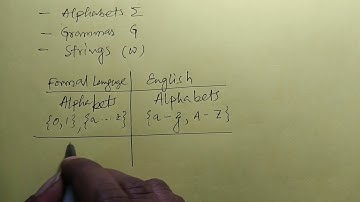 - Alphabets Σ
- Grammas G
- Strings (w)
Formal Language English
Alphabets Alphabets
{0,1}, {a .. z} {a-z, A-Z}